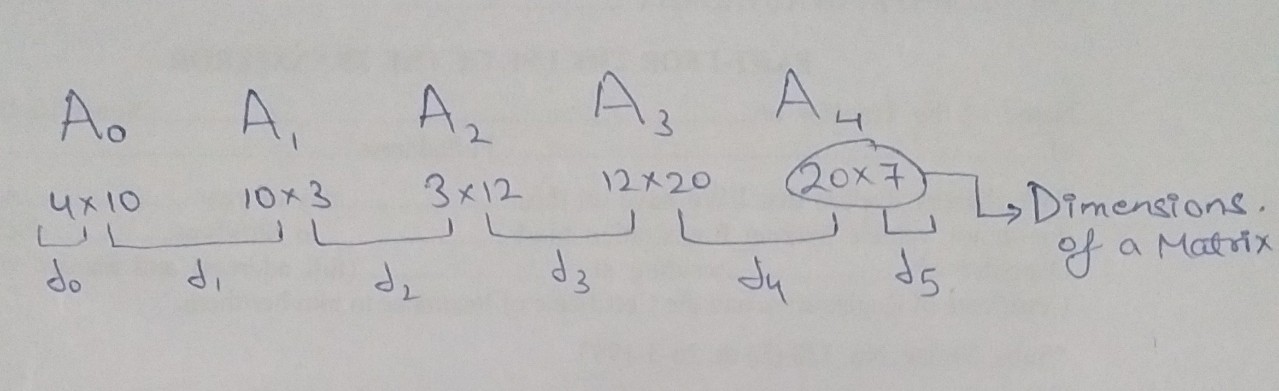 A₀ A₁ A₂ A₃ A₄
4×10 10×3 3×12 12×20 20×7
Dimensions.
of a Matrix
d₀ d₁ d₂ d₃ d₄ d₅